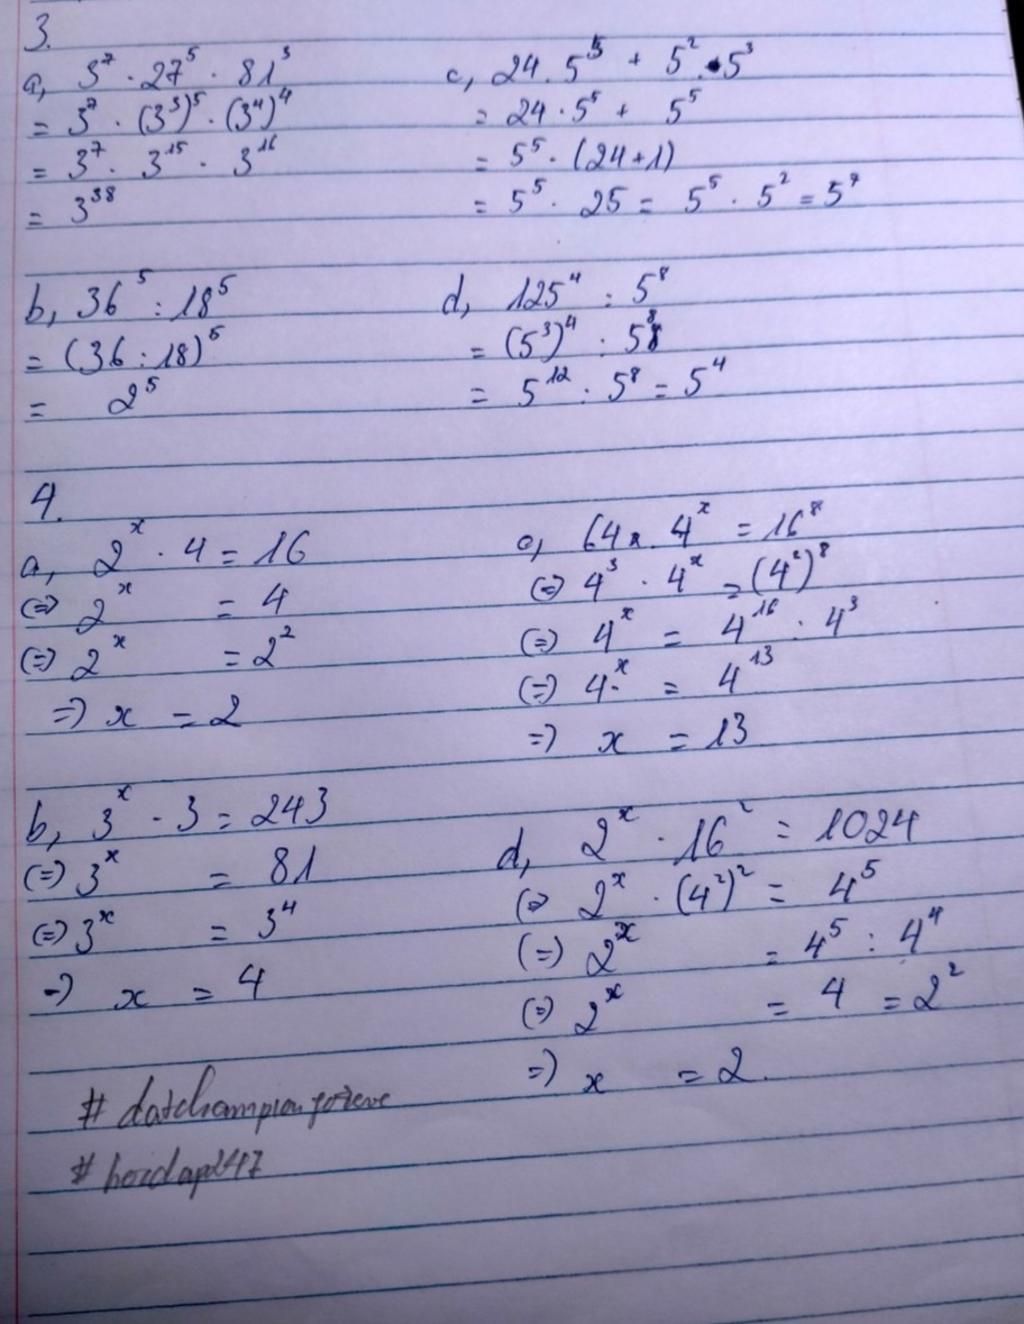 3.
a, 3^7 . 27^5 . 81^3
= 3^7 . (3^3)^5 . (3^4)^4
= 3^7 . 3^15 . 3^16
= 3^38
c, 24 . 5^5 + 5^2 . 5^3
= 24 . 5^5 + 5^5
= 5^5 . (24+1)
= 5^5 . 25 = 5^5 . 5^2 = 5^7
b, 36^5 : 18^5
= (36 : 18)^5
= 2^5
d, 125^4 : 5^8
= (5^3)^4 : 5^8
= 5^12 : 5^8 = 5^4
4.
a, 2^x . 4 = 16
(=) 2^x = 4
(=) 2^x = 2^2
=) x = 2
c, 64 . 4^x = 16^8
(=) 4^3 . 4^x = (4^2)^8
(=) 4^x = 4^16 : 4^3
(=) 4^x = 4^13
=) x = 13
b, 3^x . 3 = 243
(=) 3^x = 81
(=) 3^x = 3^4
=) x = 4
d, 2^x . 16^2 = 1024
(=) 2^x . (4^2)^2 = 4^5
(=) 2^x = 4^5 : 4^4
(=) 2^x = 4 = 2^2
=) x = 2.
#
#